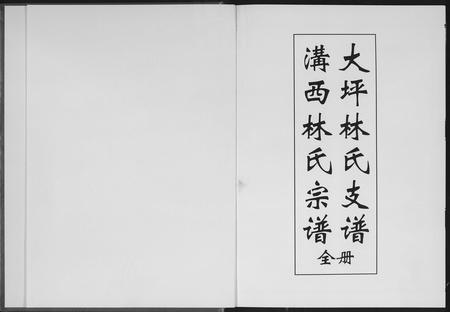 大坪林氏支谱
溝西林氏宗谱
全册